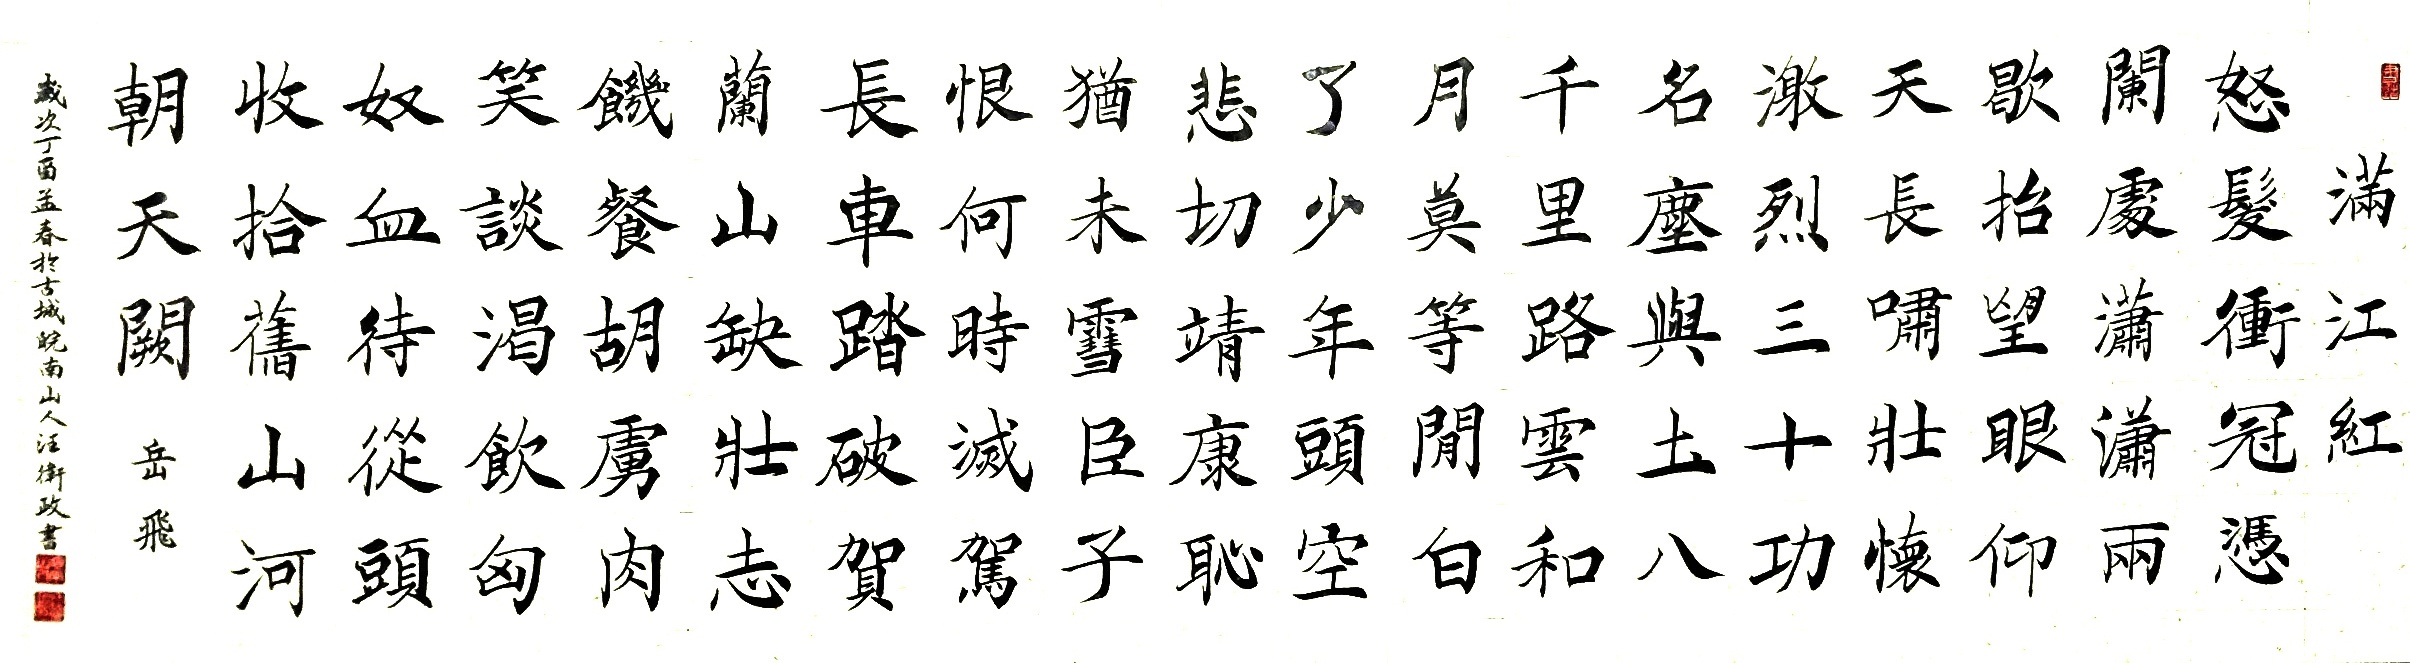 滿江紅
怒髮衝冠憑
闌處瀟瀟兩
歇抬望眼仰
天長嘯壯懷
激烈三十功
名塵與土八
千里路雲和
月莫等閒白
了少年頭空
悲切靖康恥
猶未雪臣子
恨何時滅駕
長車踏破賀
蘭山缺壯志
饑餐胡虜肉
笑談渴飲匈
奴血待從頭
收拾舊山河
朝天闕 岳飛
歲次丁酉孟春於古城皖南山人汪衛政書